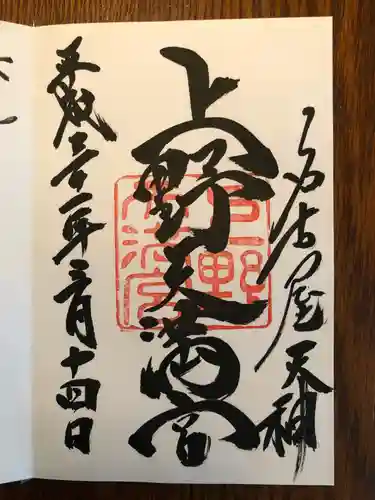 名古屋天神
上野天満宮
平成三十一年三月十四日